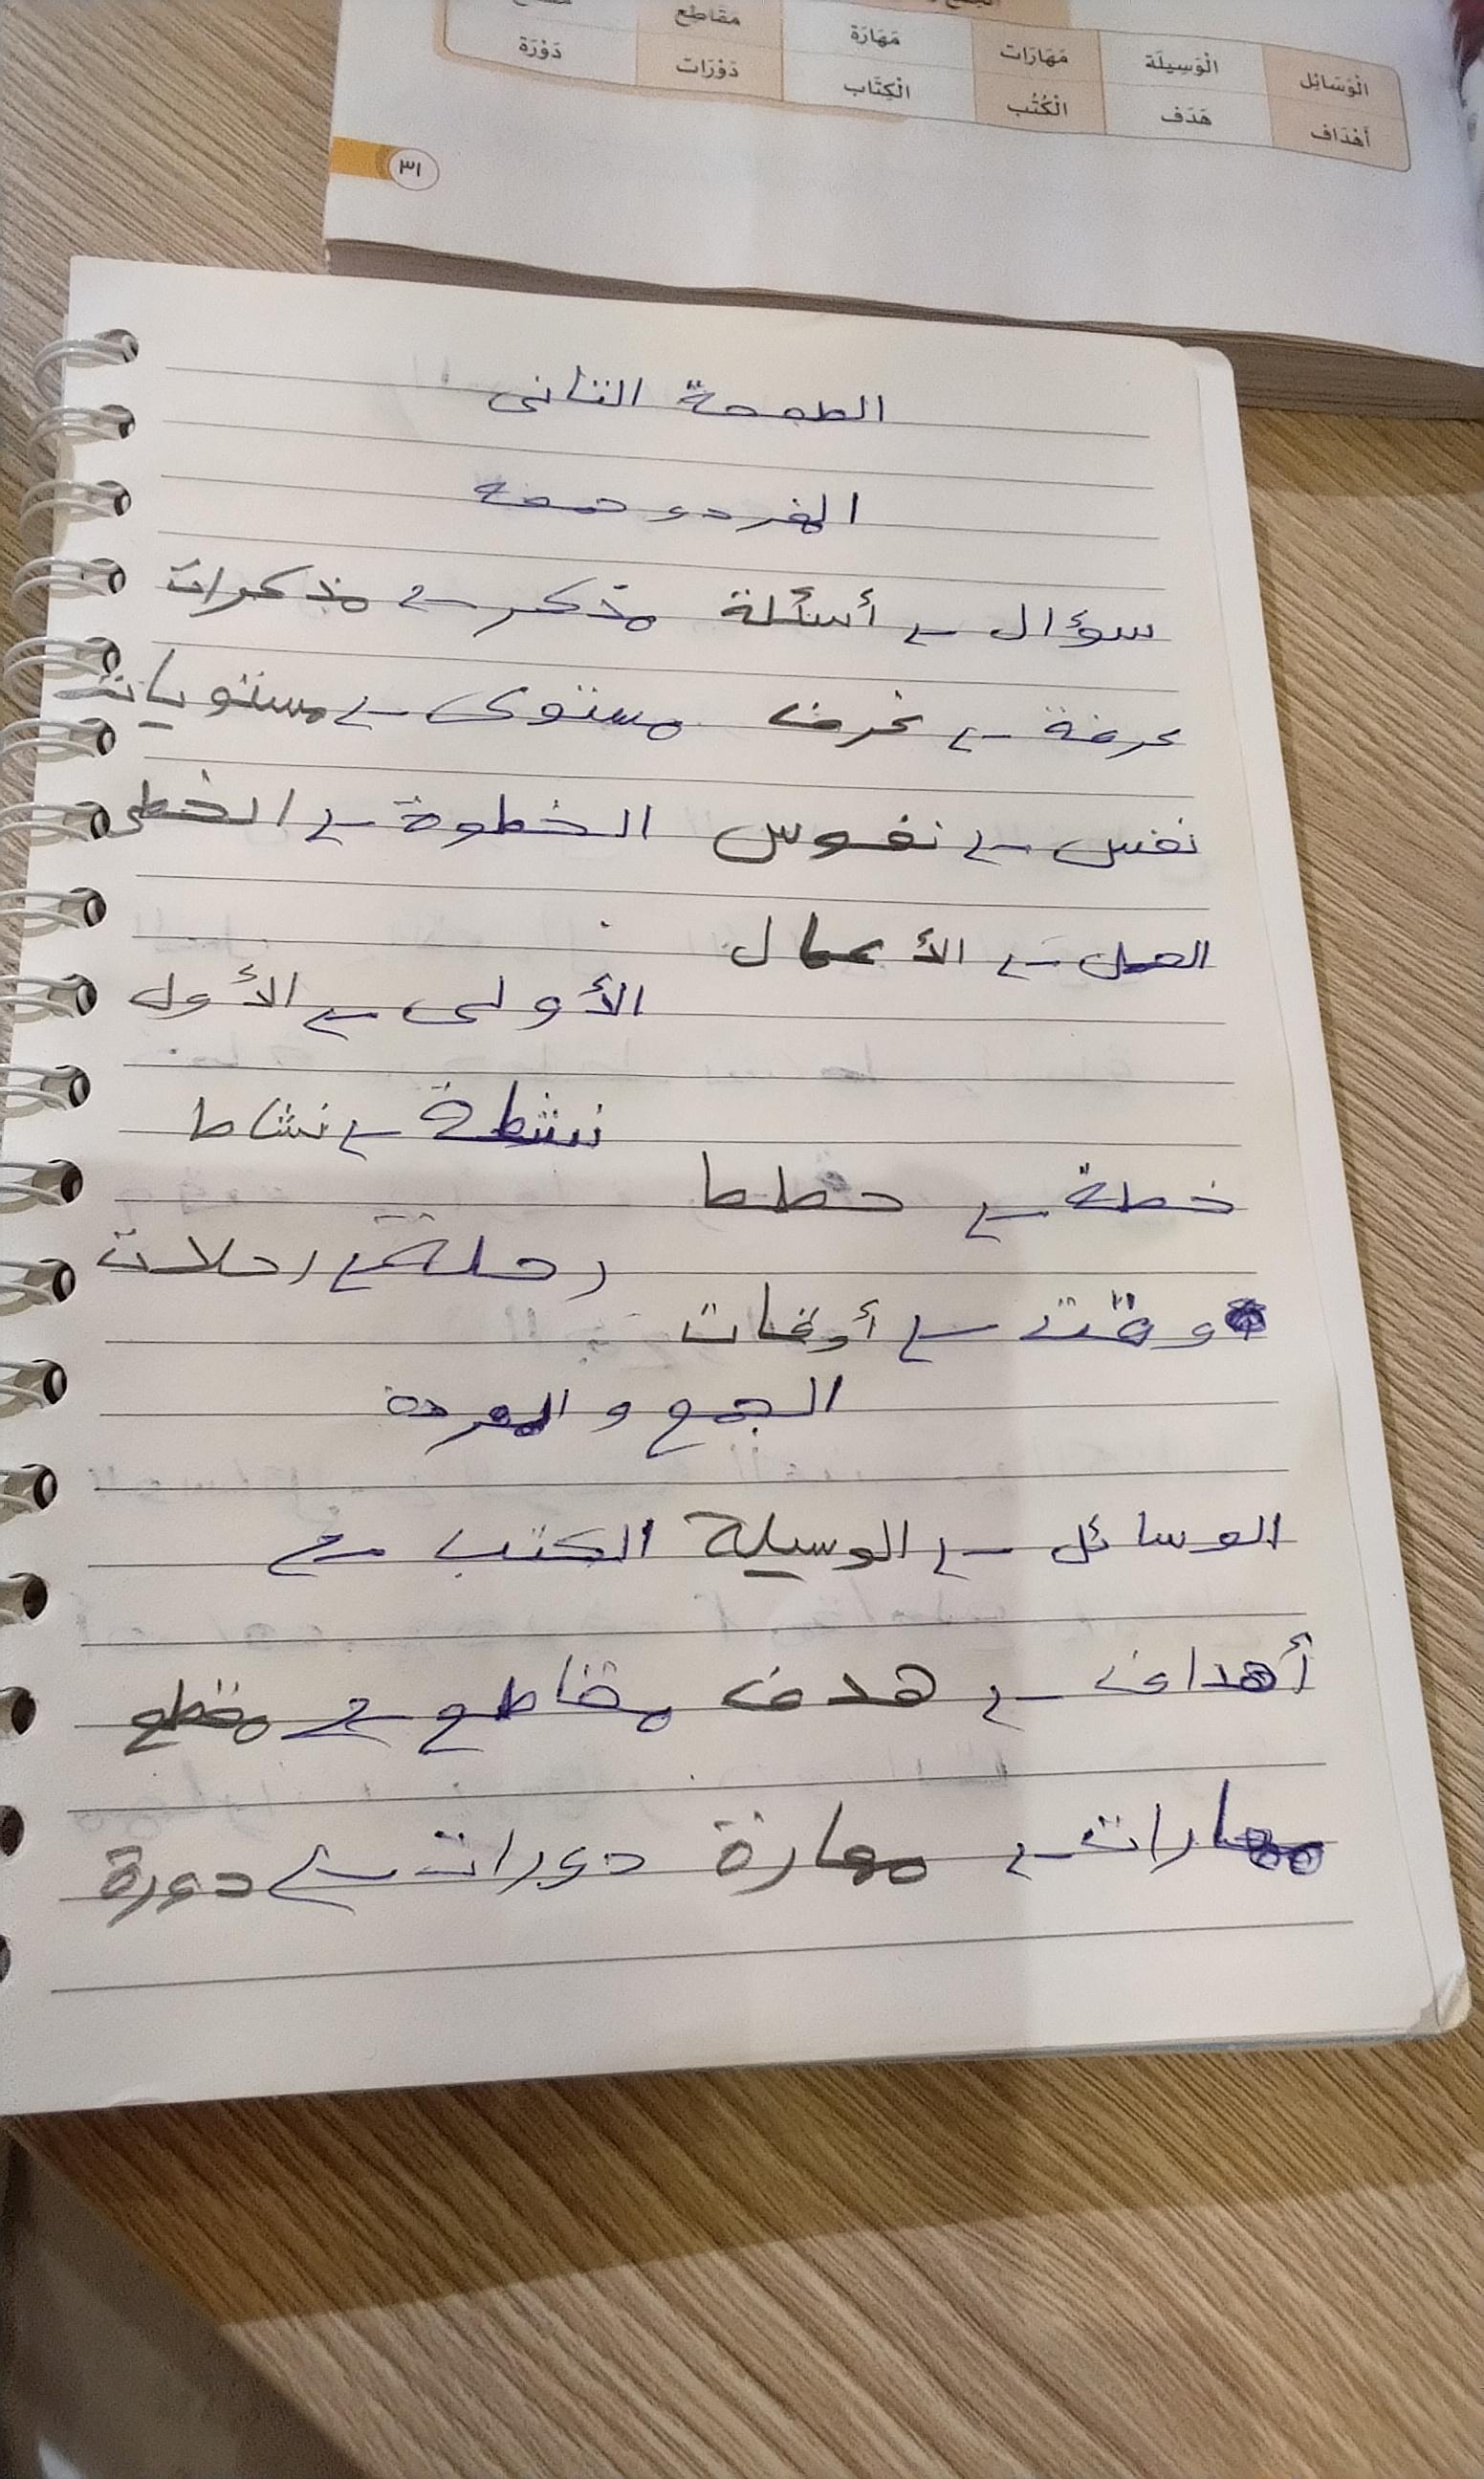 مَقَاطِع
الْوَسَائِل الْوَسِيلَة مَهَارَات مَهَارَة دَوْرَات دَوْرَة
أَهْدَاف هَدَف الْكُتُب الْكِتَاب
٣١
الثانى
المفرد و جمعه
سؤال ← أسئلة مذكر ← مذكرات
غرفة ← غرف مستوى ← مستويات
نفس ← نفوس الخطوة ← الخطى
العمل ← الأعمال
الأولى ← الأول
نشطة ← نشاط
خطة ← خطط
رحلة ← رحلات
وقت ← أوقات
الجمع و المفرده
الوسائل ← الوسيلة الكتب ←
أهداف ← هدف مقاطع ← مقطع
مهارات ← مهارة دورات ← دورة